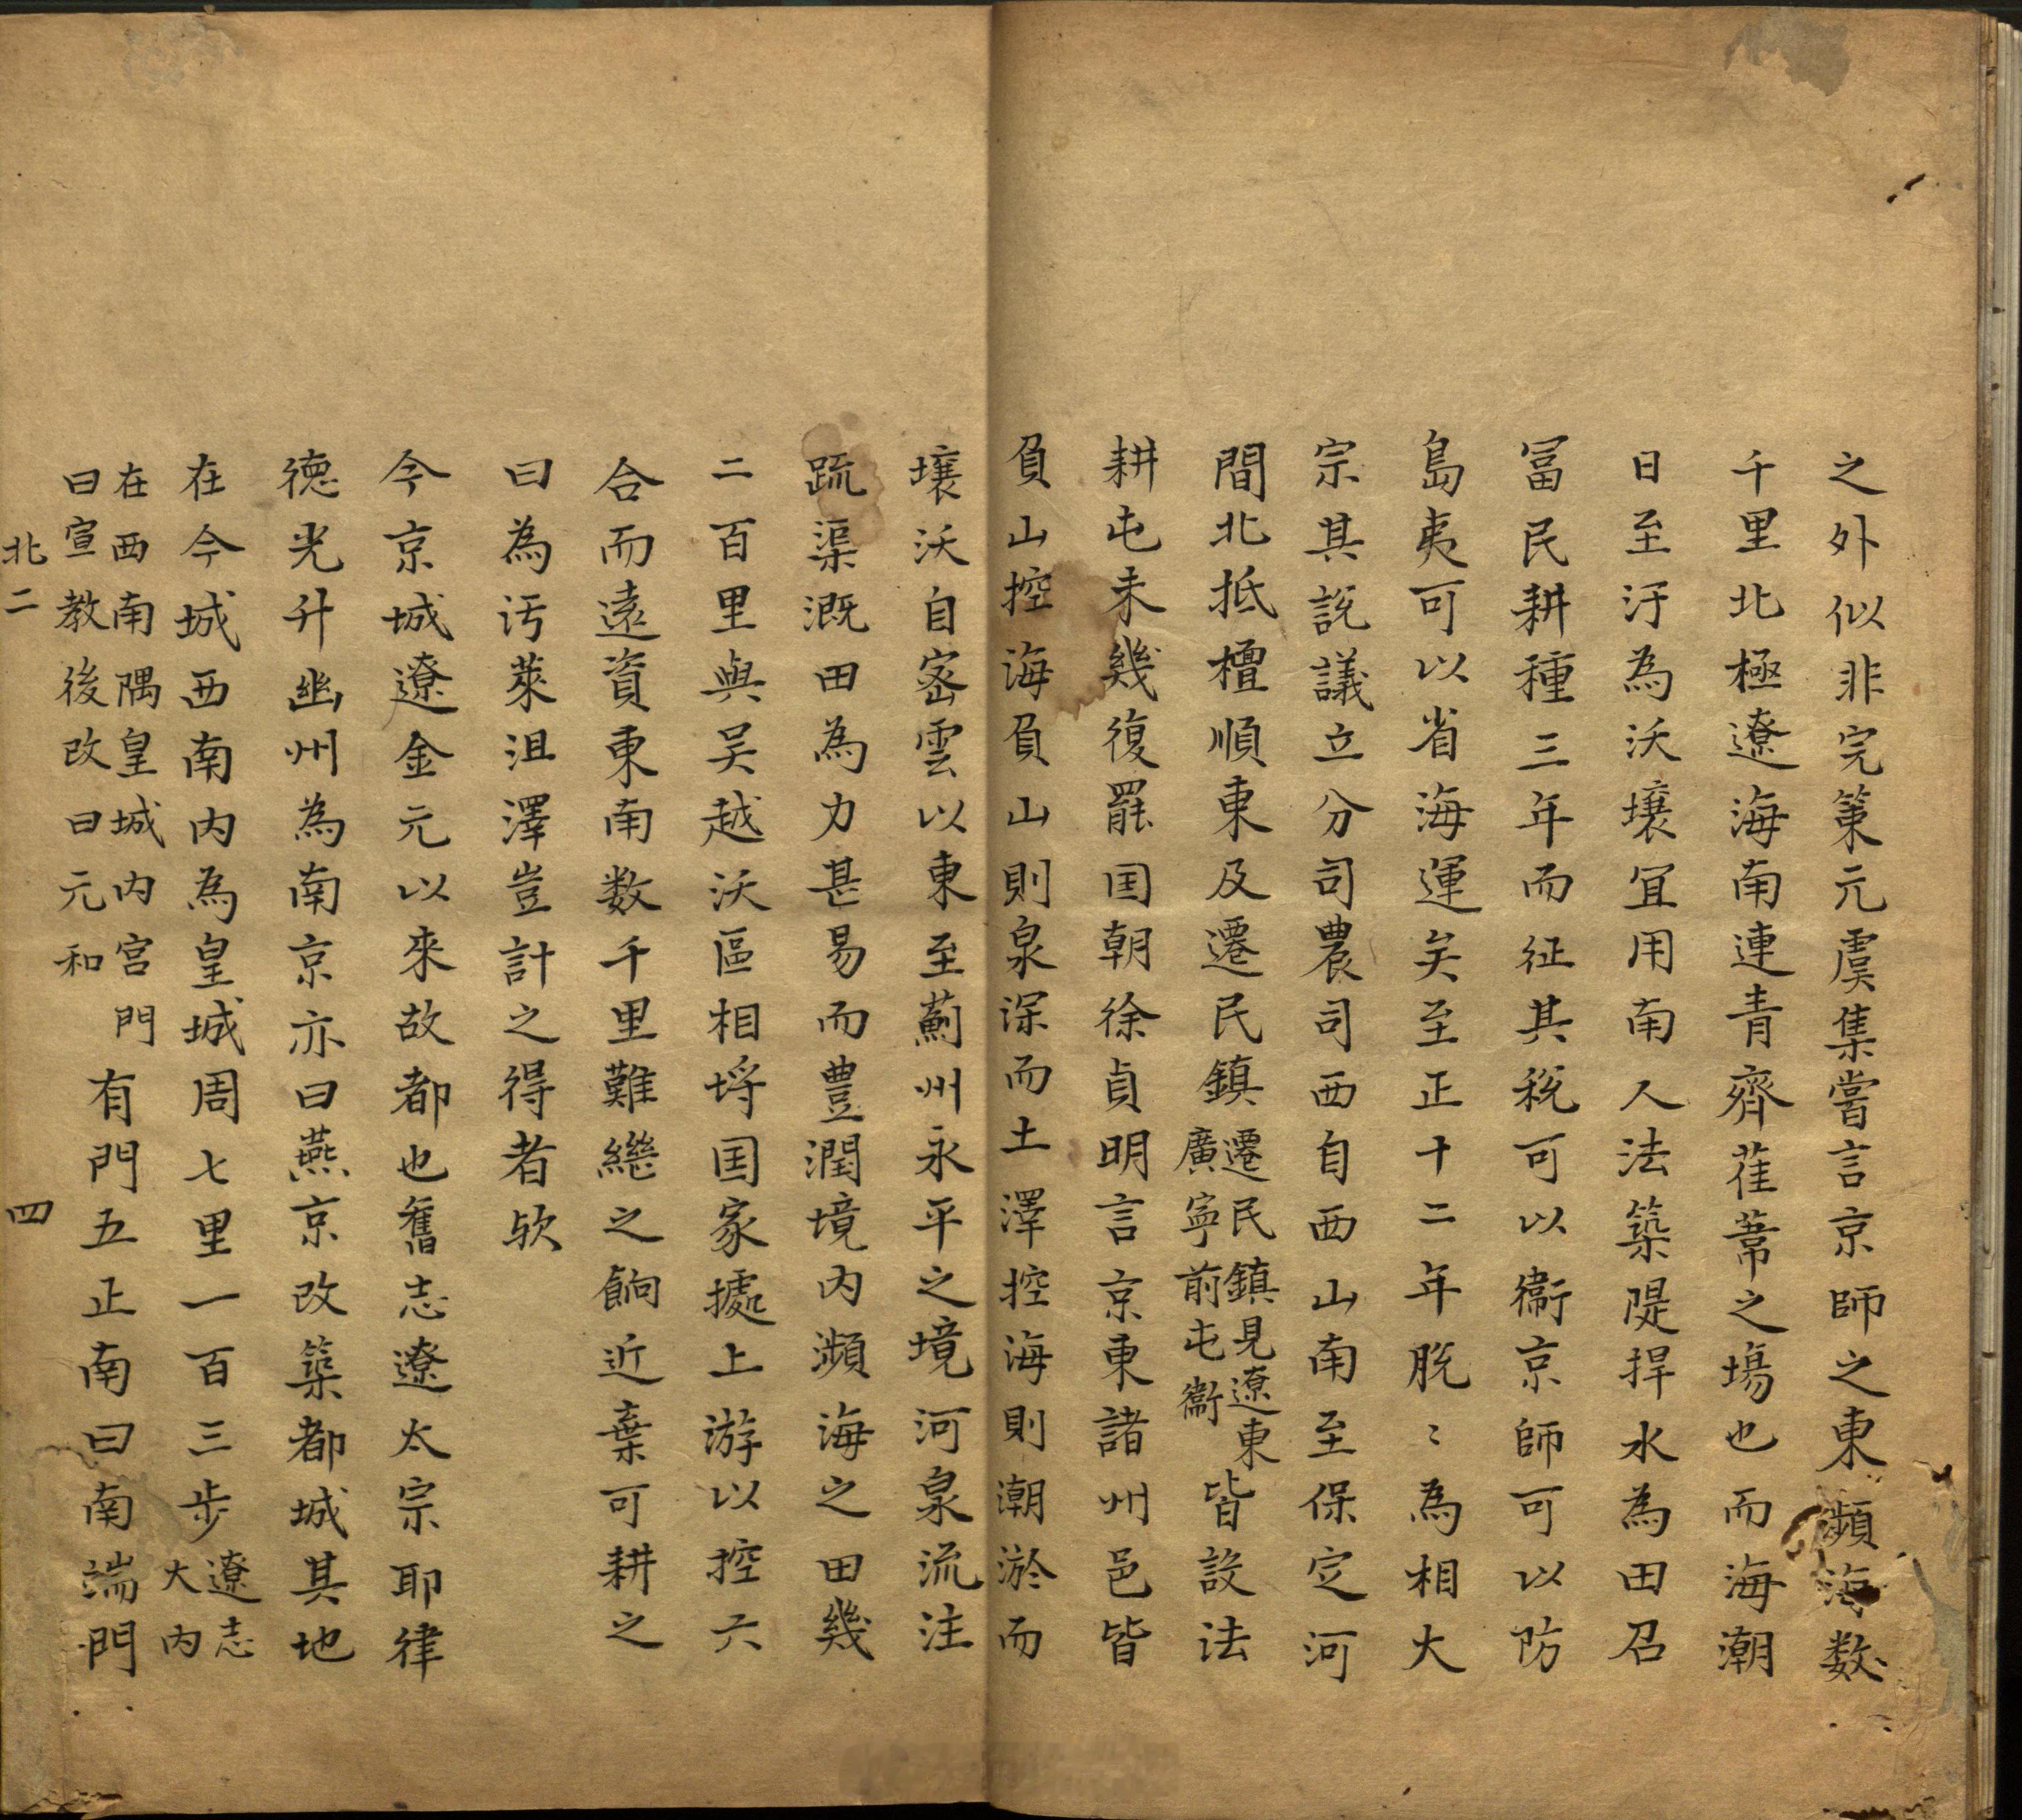 之外似非完策元虞集嘗言京師之東瀕海数
千里北極遼海南連青齊萑葦之塲也而海潮
日至汙為沃壤宜用南人法築隄捍水為田召
冨民耕種三年而征其税可以衞京師可以防
島夷可以省海運矣至正十二年脱〻為相大
宗其説議立分司農司西自西山南至保定河
間北抵檀順東及遷民鎮遷民鎮見遼東廣寧前屯衞皆設法
耕屯未幾復罷国朝徐貞明言京東諸州邑皆
負山控海負山則泉深而土澤控海則潮淤而
壤沃自密雲以東至薊州永平之境河泉流注
疏渠溉田為力甚易而豊潤境内瀕海之田幾
二百里與吴越沃區相埒国家據上游以控六
合而遠資東南数千里難繼之餉近棄可耕之
曰為汚萊沮澤豈計之得者欤
今京城遼金元以來故都也舊志遼太宗耶律
德光升幽州為南京亦曰燕京改築都城其地
在今城西南内為皇城周七里一百三步遼志大内
在西南隅皇城内宫門曰宣教後改曰元和有門五正南曰南端門
北二 四